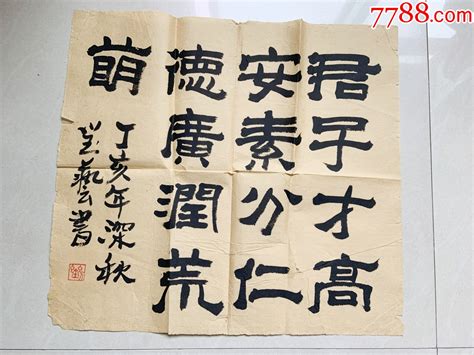 7788.com
君子才高
安素分仁
德廣潤荒
萌
丁亥年深秋
藝書